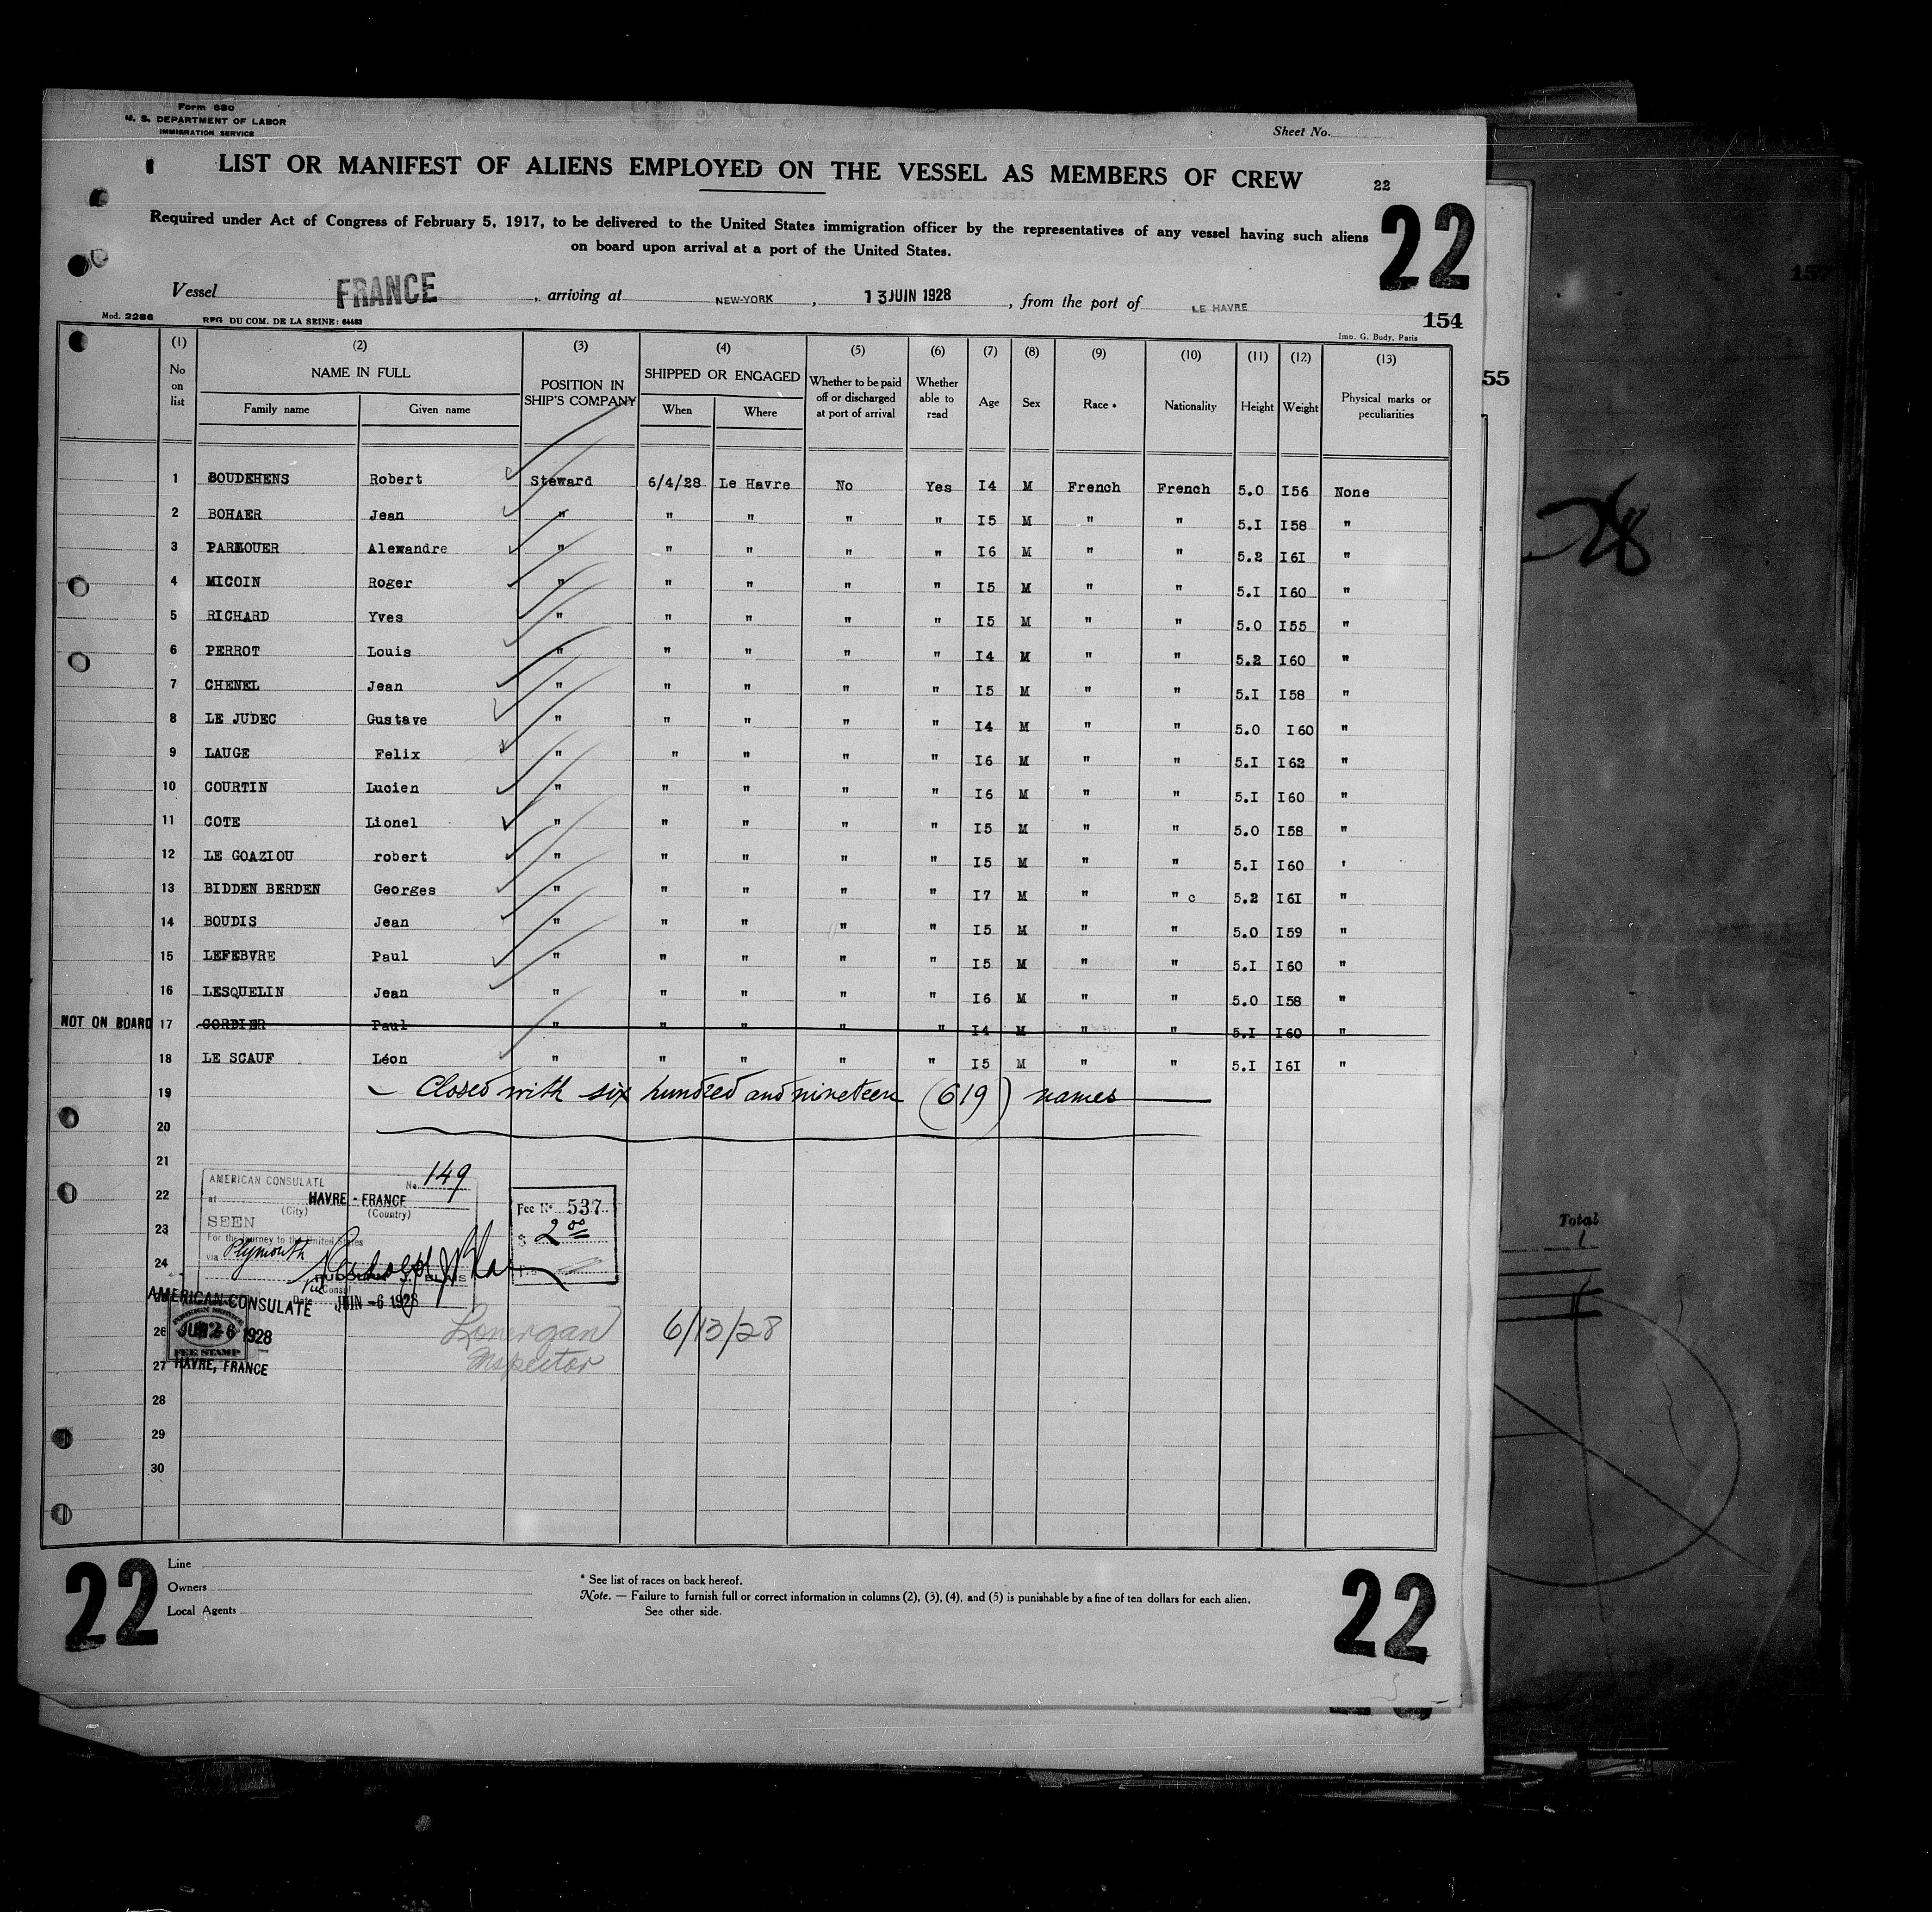 Form 680
U. S. DEPARTMENT OF LABOR
IMMIGRATION SERVICE
Sheet No.
LIST OR MANIFEST OF ALIENS EMPLOYED ON THE VESSEL AS MEMBERS OF CREW
22
22
Required under Act of Congress of February 5, 1917, to be delivered to the United States immigration officer by the representatives of any vessel having such aliens
on board upon arrival at a port of the United States.
Vessel FRANCE , arriving at NEW-YORK , 13 JUIN 1928 , from the port of LE HAVRE
Mod. 2286 REG. DU COM. DE LA SEINE: 64483
154
Imp. G. Budy, Paris
(1) (2) (3) (4) (5) (6) (7) (8) (9) (10) (11) (12) (13)
No on list NAME IN FULL POSITION IN SHIP'S COMPANY SHIPPED OR ENGAGED Whether to be paid off or discharged at port of arrival Whether able to read Age Sex Race * Nationality Height Weight Physical marks or peculiarities
Family name Given name When Where
1 BOUDEHENS Robert Steward 6/4/28 Le Havre No Yes I4 M French French 5.0 I56 None
2 BOHAER Jean " " " " " I5 M " " 5.I I58 "
3 PARKOUER Alexandre " " " " " I6 M " " 5.2 I6I "
4 MICOIN Roger " " " " " I5 M " " 5.I I60 "
5 RICHARD Yves " " " " " I5 M " " 5.0 I55 "
6 PERROT Louis " " " " " I4 M " " 5.2 I60 "
7 CHENEL Jean " " " " " I5 M " " 5.I I58 "
8 LE JUDEC Gustave " " " " " I4 M " " 5.0 I60 "
9 LAUGE Felix " " " " " I6 M " " 5.I I62 "
10 COURTIN Lucien " " " " " I6 M " " 5.I I60 "
11 COTE Lionel " " " " " I5 M " " 5.0 I58 "
12 LE GOAZIOU robert " " " " " I5 M " " 5.I I60 '
13 BIDDEN BERDEN Georges " " " " " I7 M " " c 5.2 I6I "
14 BOUDIS Jean " " " " " I5 M " " 5.0 I59 "
15 LEFEBVRE Paul " " " " " I5 M " " 5.I I60 "
16 LESQUELIN Jean " " " " " I6 M " " 5.0 I58 "
NOT ON BOARD 17 CORDIER Paul " " " " " I4 M " " 5.I I60 "
18 LE SCAUF Léon " " " " " I5 M " " 5.I I6I "
19 Closed with six hundred and nineteen (619) names
20
21
AMERICAN CONSULATE No. 149
22
at HAVRE - FRANCE
(City) (Country)
Fee No 537
23
SEEN
$ 2.00
For the journey to the United States
24
via Plymouth
RUDOLPH J. BLAIS
Vice Consul
Date JUIN -6 1928
AMERICAN CONSULATE
FOREIGN SERVICE
26 JUN -6 1928
FEE STAMP
27 HAVRE, FRANCE
Lonergan 6/13/28
Inspector
28
29
30
22
Line
Owners
Local Agents
* See list of races on back hereof.
Note. — Failure to furnish full or correct information in columns (2), (3), (4), and (5) is punishable by a fine of ten dollars for each alien.
See other side.
22
55
157
28
Total